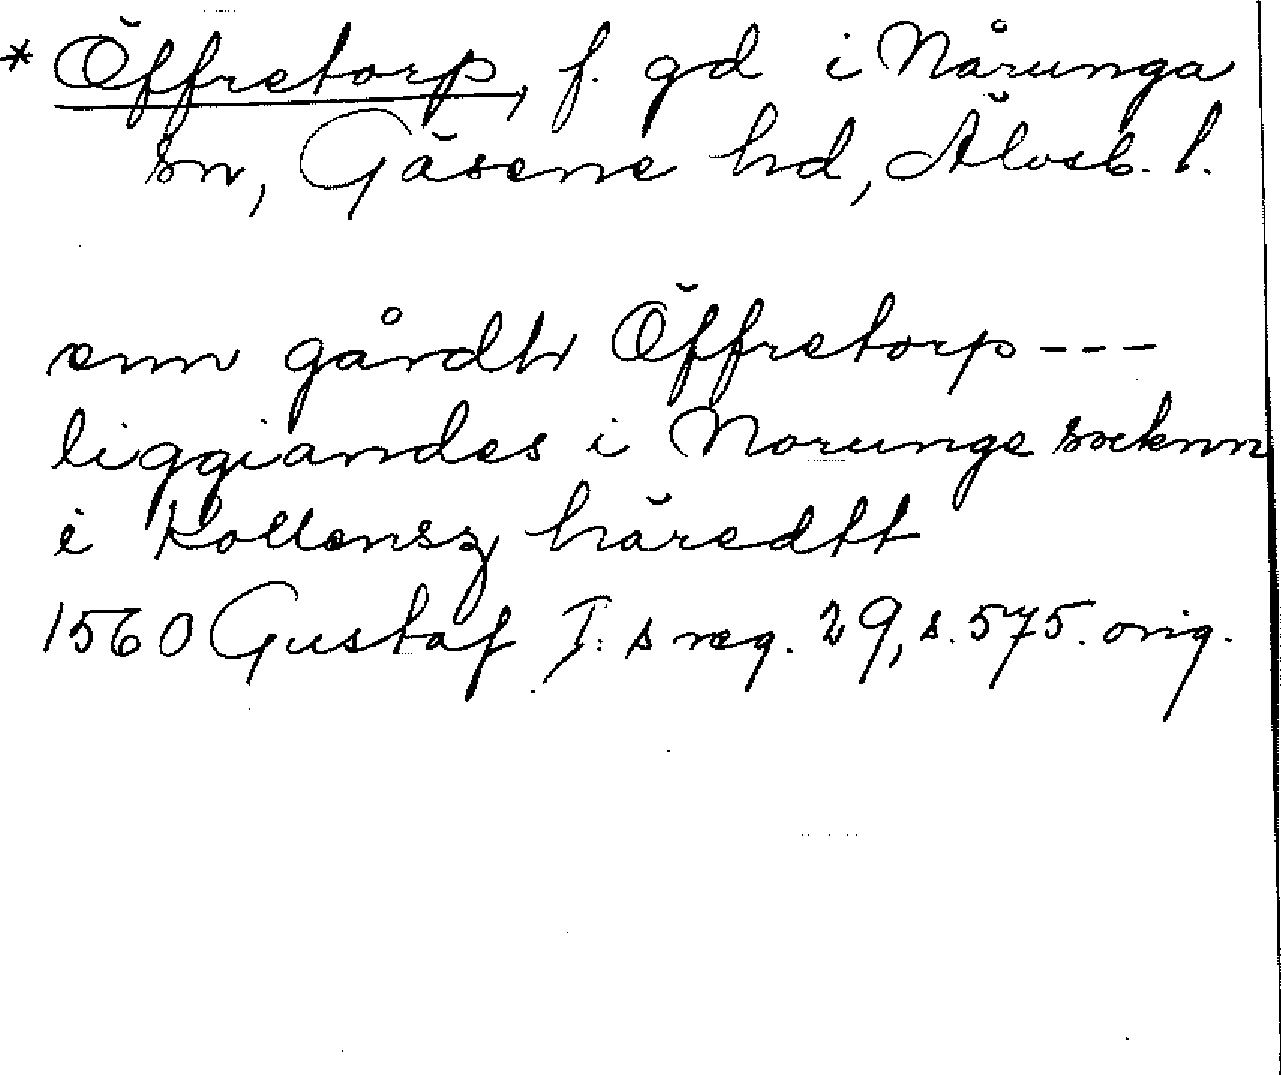 * Öffretorp, f. gd i Nårunga
sn, Gäsene hd, Älvsb. l.
enn gårdh Öffretorp ---
liggiandes i Norunge soeknn
i Kollensz häredtt
1560 Gustaf I:s reg. 29, s. 575. orig.